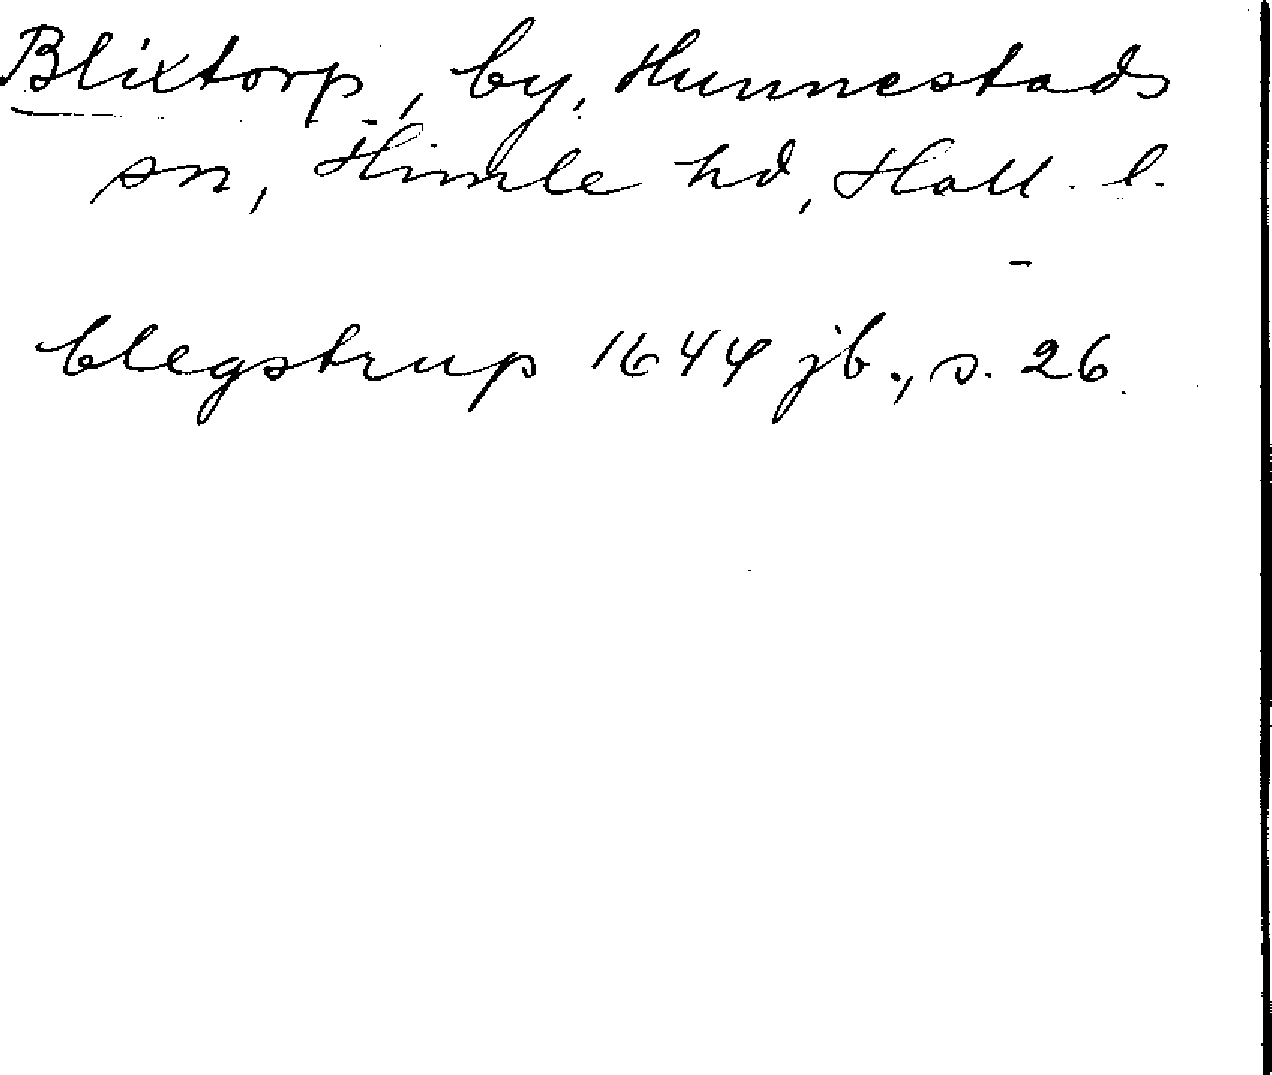 Blixtorp, by, Hunnestads
sn, Himle hd, Hall. l.
blegstrup 1644 jb., s. 26